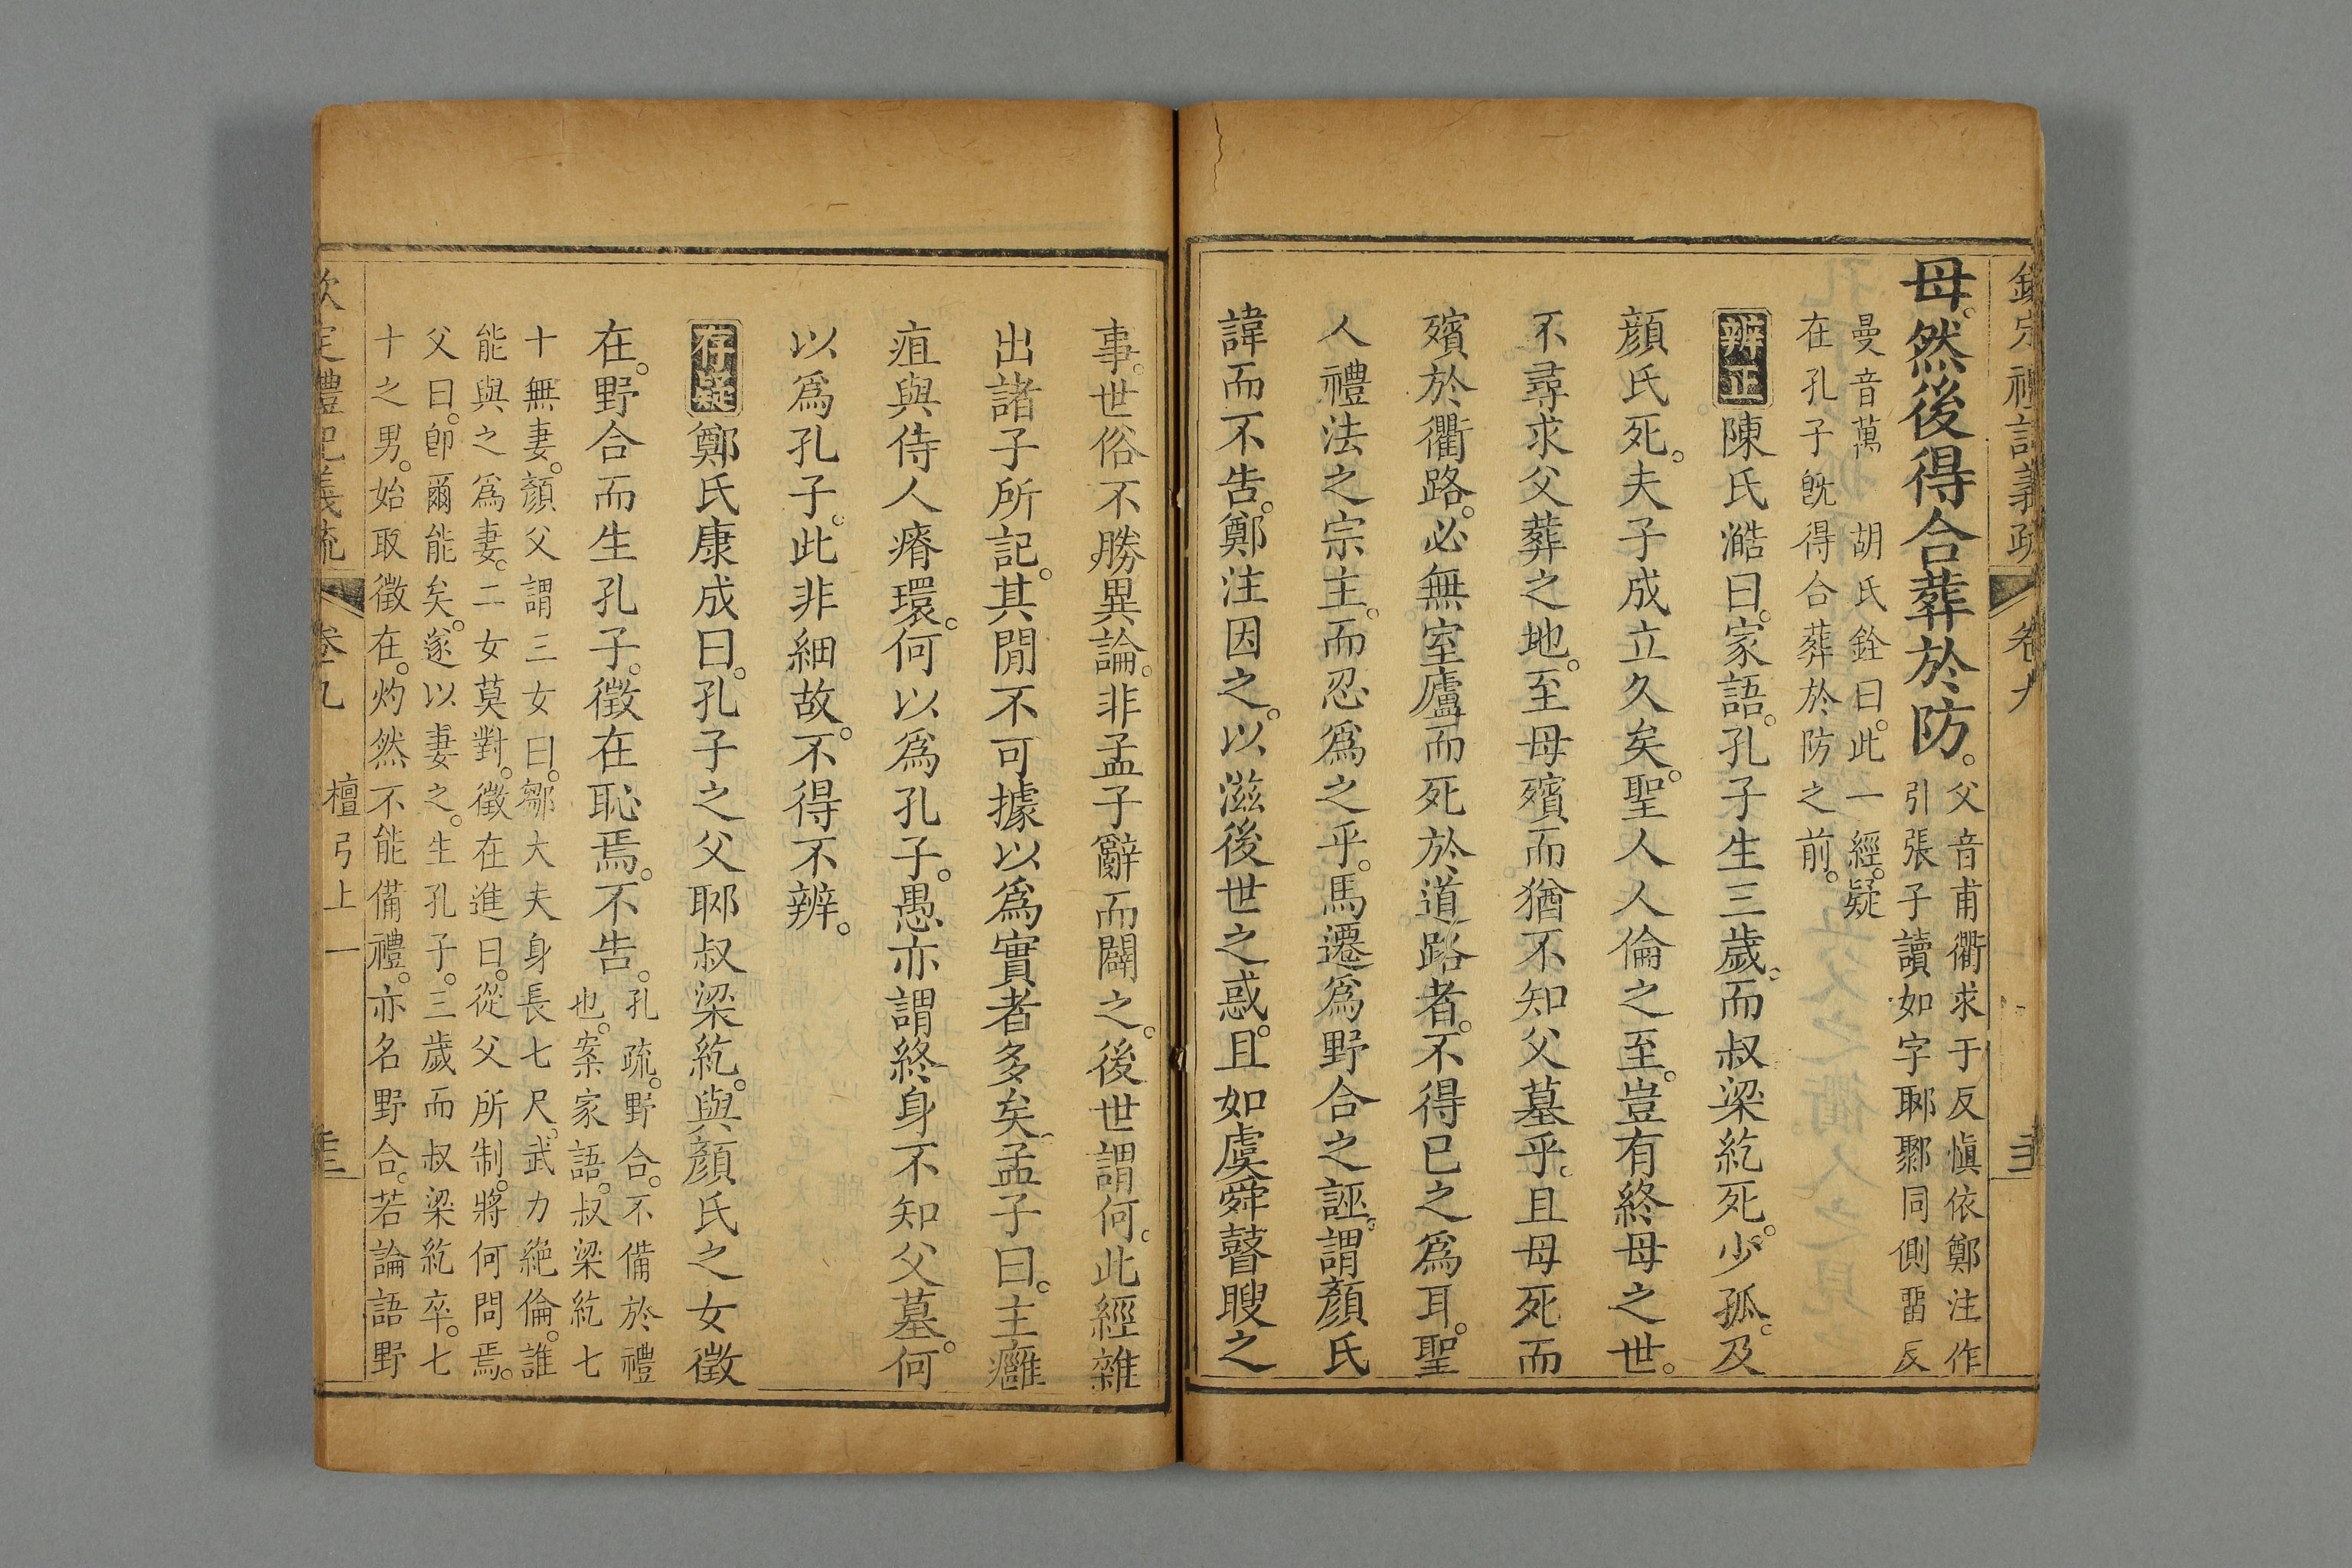 欽定禮記義疏 卷九
母。然後得合葬於防。父音甫衢求于反愼依鄭注作
引張子讀如字郰鄹同側畱反
曼音萬 胡氏銓曰。此一經。疑
在孔子旣得合葬於防之前。
辨正陳氏澔曰。家語。孔子生三歲。而叔梁紇死。少孤。及
顏氏死。夫子成立久矣。聖人人倫之至。豈有終母之世。
不尋求父葬之地。至母殯而猶不知父墓乎。且母死而
殯於衢路。必無室廬而死於道路者。不得已之爲耳。聖
人禮法之宗主。而忍爲之乎。馬遷爲野合之誣。謂顏氏
諱而不告。鄭注因之。以滋後世之惑。且如虞舜瞽瞍之
事。世俗不勝異論。非孟子辭而闢之。後世謂何。此經雜
出諸子所記。其閒不可據以爲實者多矣。孟子曰。主癰
疽與侍人瘠環。何以爲孔子。愚亦謂終身不知父墓。何
以爲孔子。此非細故。不得不辨。
存疑鄭氏康成曰。孔子之父郰叔梁紇。與顏氏之女徵
在。野合而生孔子。徵在恥焉。不告。孔疏。野合。不備於禮
也。案家語。叔梁紇七
十無妻。顏父謂三女曰。鄒大夫身長七尺。武力絶倫。誰
能與之爲妻。二女莫對。徵在進曰。從父所制。將何問焉。
父曰。卽爾能矣。遂以妻之。生孔子。三歲而叔梁紇卒。七
十之男。始取徵在。灼然不能備禮。亦名野合。若論語野
欽定禮記義疏 卷九 檀弓上一